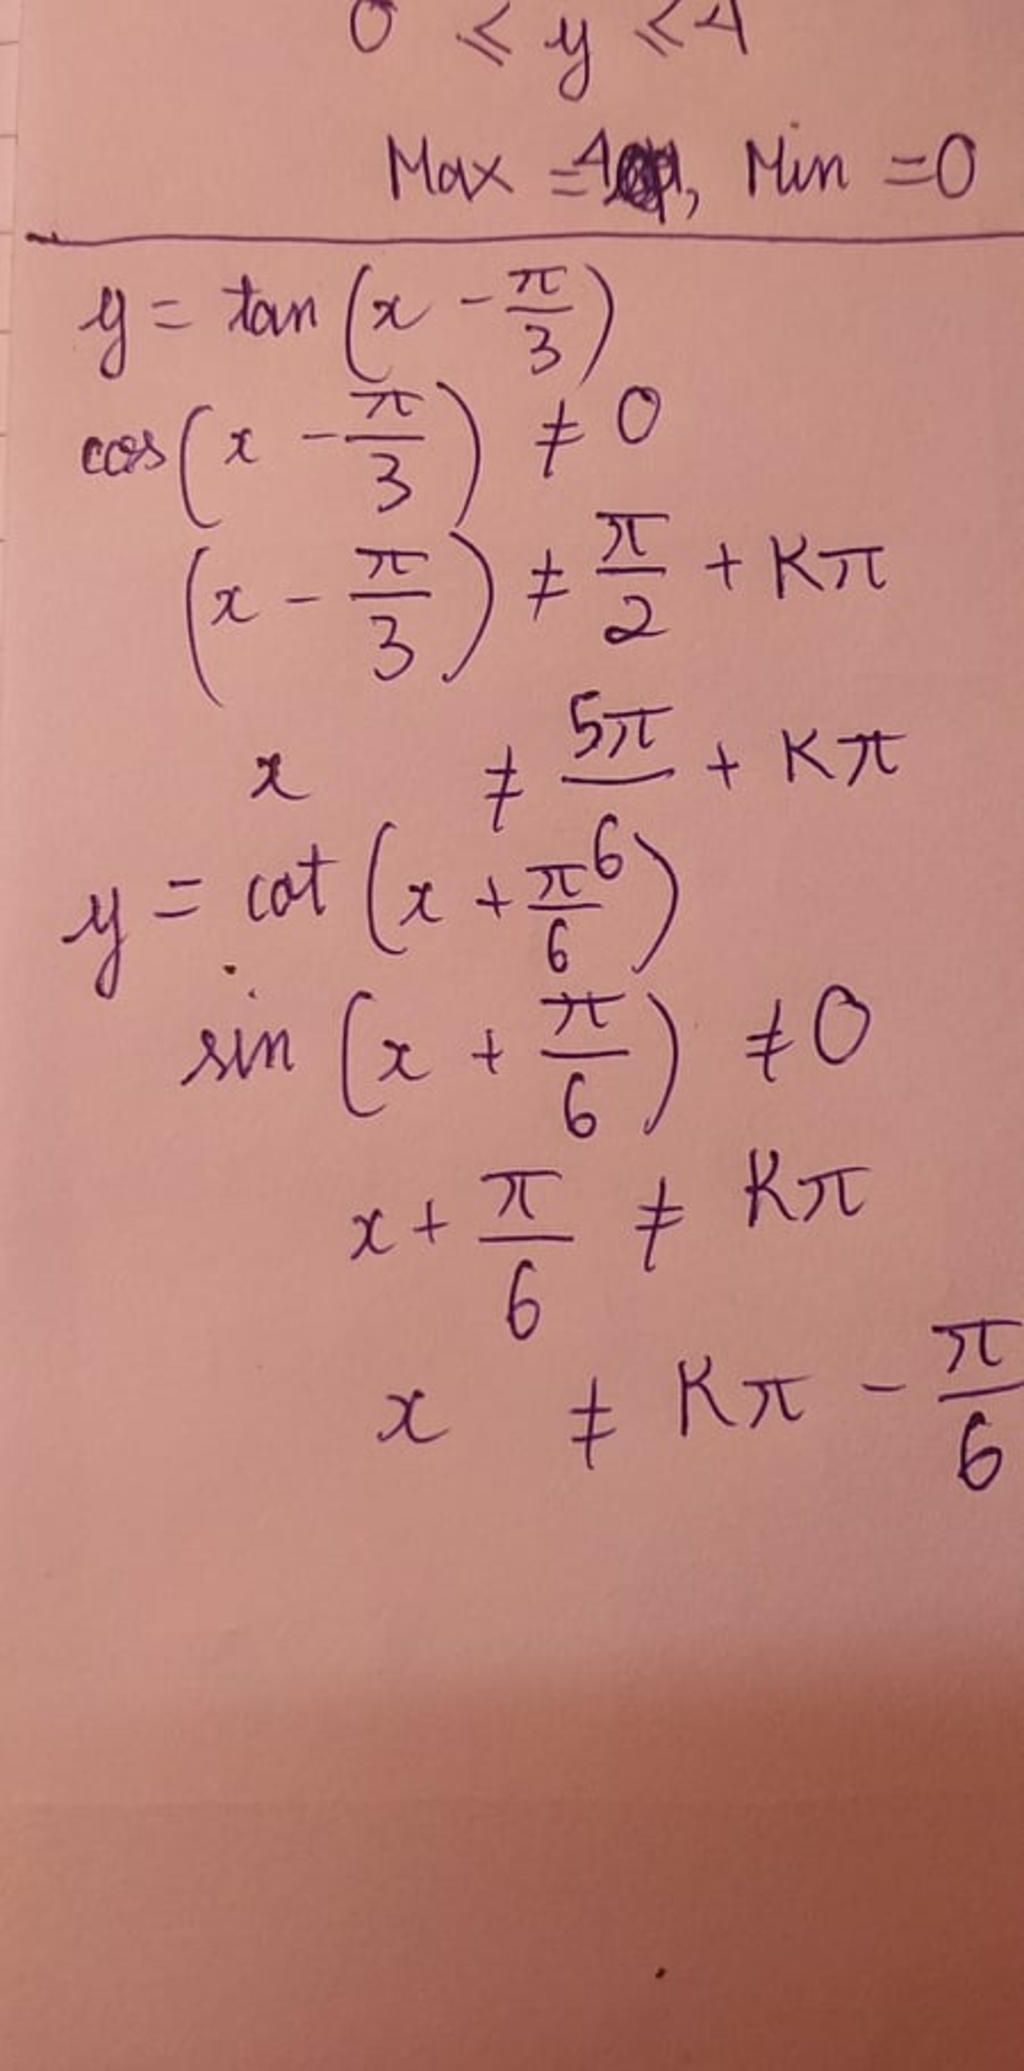 0 ≤ y ≤ 4
Max = 4, Min = 0
y = tan (x - π/3)
cos (x - π/3) ≠ 0
(x - π/3) ≠ π/2 + Kπ
x ≠ 5π/6 + Kπ
y = cot (x + π/6)
sin (x + π/6) ≠ 0
x + π/6 ≠ Kπ
x ≠ Kπ - π/6